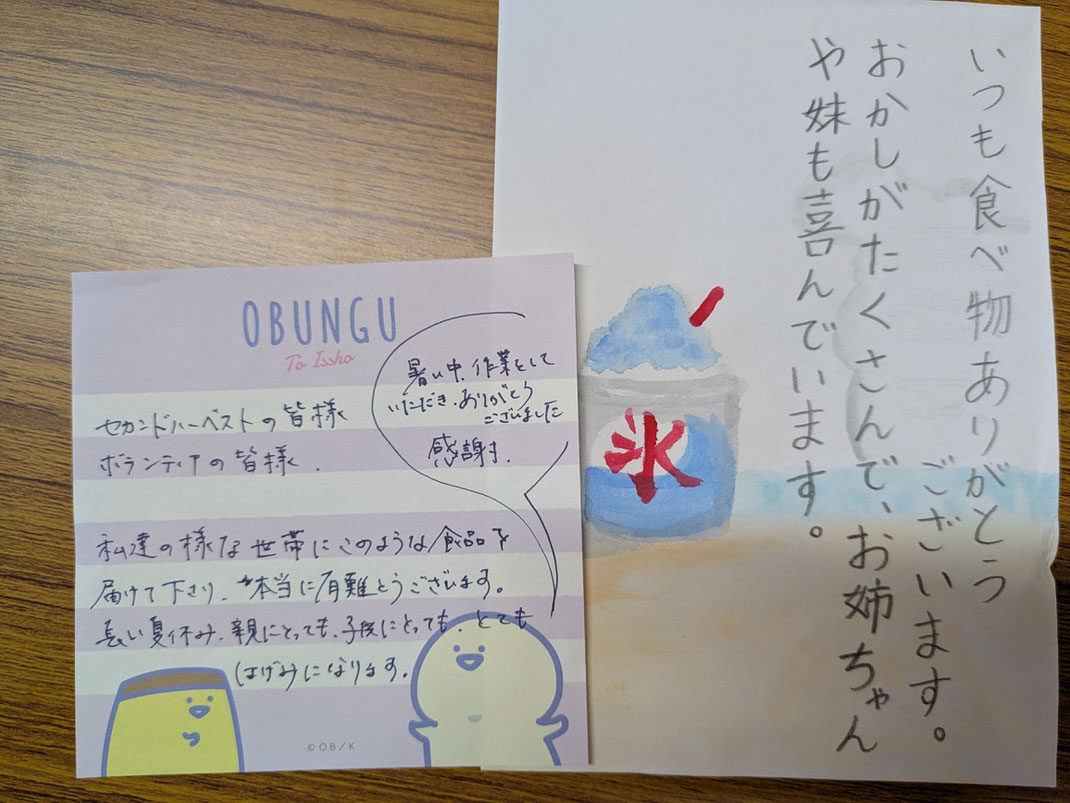 OBUNGU
To Issho
セカンドハーベストの皆様
ボランティアの皆様.
暑い中、作業をして
いただき、ありがとう
ございました
感謝す.
私達の様な世帯にこのような食品を
届けて下さり、本当に有難とうございます。
長い夏休み、親にとっても、子供にとっても、とても
はげみになります。
©OB/K
いつも食べ物ありがとう
ございます。
おかしがたくさんで、お姉ちゃん
や妹も喜んでいます。
氷